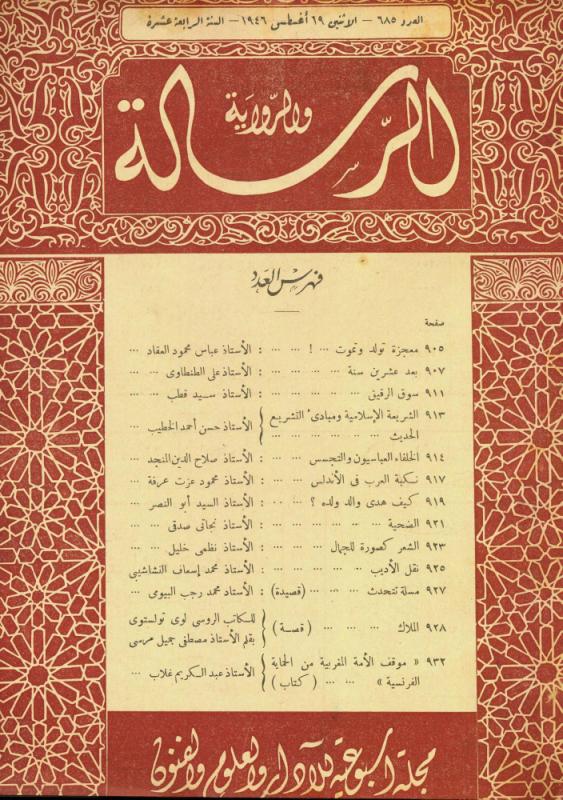 العدد ٦٨٥ – الاثنين ١٩ أغسطس ١٩٤٦ – السنة الرابعة عشرة
الرسالة
والرواية
فهرس العدد
صفحة
٩٠٥ معجزة تولد وتموت ... ! ... ... : الأستاذ عباس محمود العقاد ...
٩٠٧ بعد عشرين سنة ... ... ... ... : الأستاذ على الطنطاوى ...
٩١١ سوق الرقيق ... ... ... ... : الأستاذ سيد قطب ...
٩١٣ الشريعة الإسلامية ومبادئ التشريع
الحديث ... ... ... ... ... } الأستاذ حسن أحمد الخطيب ...
٩١٤ الخلفاء العباسيون والتجسس ... ... : الأستاذ صلاح الدين المنجد ...
٩١٧ نكبة العرب فى الأندلس ... ... : الأستاذ محمود عزت عرفة ...
٩١٩ كيف هدى والد ولده ؟ ... ... : الأستاذ السيد أبو النصر ...
٩٢١ الضحية ... ... ... ... ... : الأستاذ نجاتى صدقى ...
٩٢٣ الشعر كصورة للجمال ... ... ... : الأستاذ نظمى خليل ...
٩٢٥ نقل الأديب ... ... ... ... : الأستاذ محمد إسعاف النشاشيبى
٩٢٧ مسلة تتحدث ... ... ... (قصيدة) : الأستاذ محمد رجب البيومى ...
٩٢٨ الملاك ... ... ... ( قصة ) { للكاتب الروسى لوى تولستوى
بقلم الأستاذ مصطفى جميل مرسى
٩٣٢ « موقف الأمة المغربية من الحماية
الفرنسية » ... ... ( كتاب ) } الأستاذ عبد الكريم غلاب ...
مجلة أسبوعية للآداب والعلوم والفنون